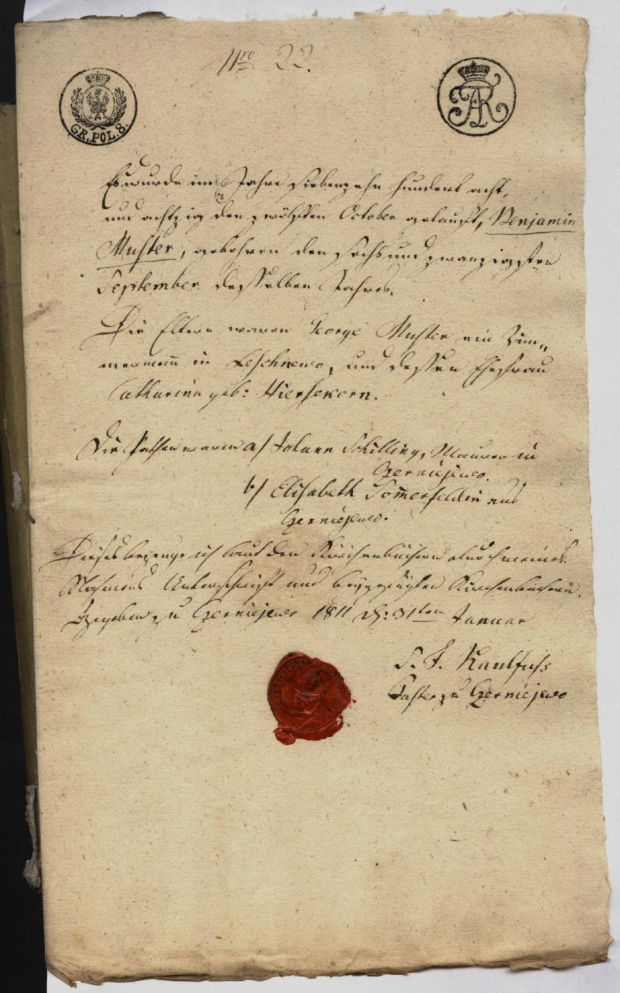 Nro 22.
GR. POL. 8.
AR
Es wurde im Jahre siebenzehn hundert acht
und achtzig den zwölften October getauft, Benjamin
Muster, gebohren den sechs und zwanzigsten
September desselben Jahres.
Die Eltern waren George Muster ein Zim„
mermann in Leschnewo, und dessen Ehefrau
Catharina geb: Hiersekorn.
Die Pathen waren a/ Johann Schilling, Maurer in
Czerniejewo.
b/ Elisabeth Sommerfeldin aus
Czerniejewo.
Dieses bezeuge ich laut den Kirchenbüchern durch meines
Nahmens Unterschrift und beygefügten
Gegeben zu Czerniejewo 1811 d: 31ten Januar
S. F. Kaulfuss
Pastor zu Czerniejewo